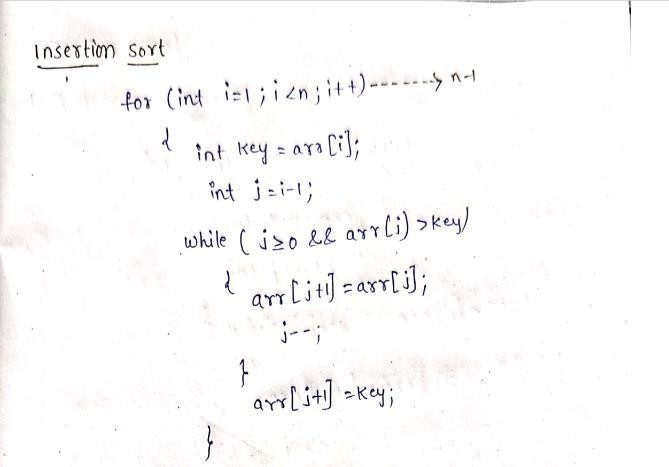 Insertion Sort
for (int i=1; i<n; i++)-------> n-1
{ int key = arr[i];
int j=i-1;
while ( j≥0 && arr[i) >key)
{ arr[j+1] = arr[j];
j--;
}
arr[j+1] = key;
}